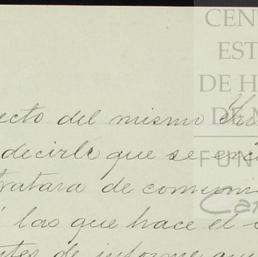 CEN
EST
DE H
DE M
FUN
Car
ecto del mismo
decirle que se
tratara de comuni
las que hace el
tes de informe